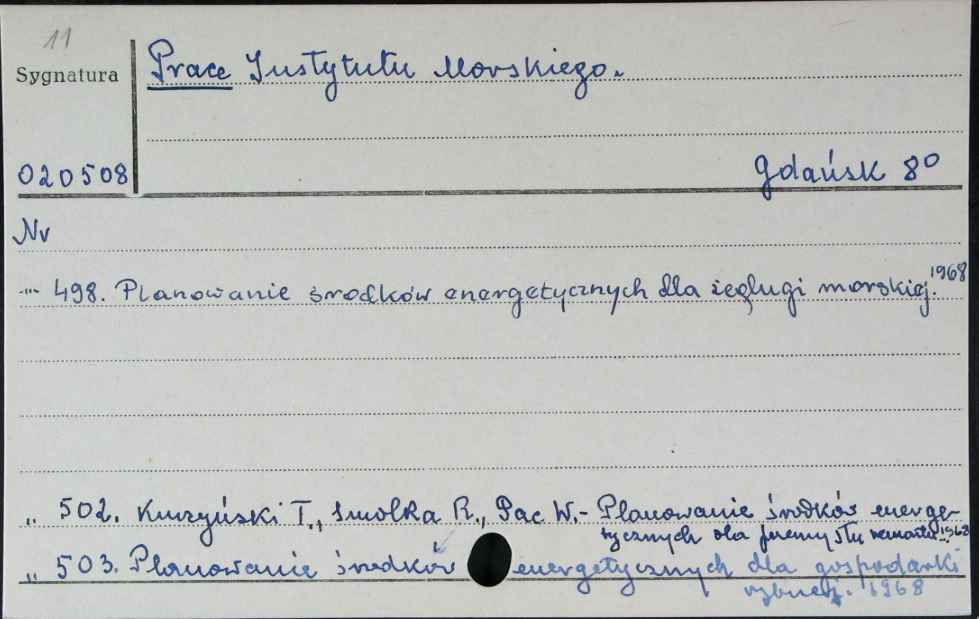 11
Sygnatura
Prace Instytutu Morskiego.
020508
Gdańsk 8°
Nr
-"- 498. Planowanie środków energetycznych dla żeglugi morskiej. 1968
„ 502. Kuszyński T., Smolka R., Pac W.- Planowanie środków energe-
tycznych dla przemysłu 1968
„ 503. Planowanie środków energetycznych dla gospodarki
rybnej. 1968